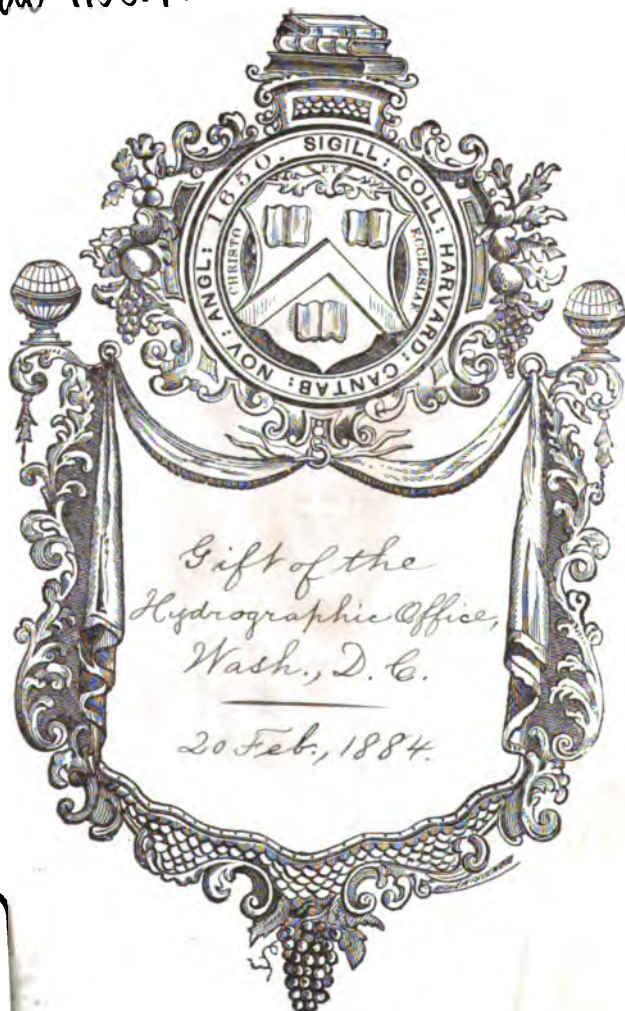 SIGILL: COLL: HARVARD: CANTAB: NOV: ANGL: 1650.
ET
CHRISTO
ECCLESIAE
Gift of the
Hydrographic Office,
Wash., D. C.
20 Feb., 1884.